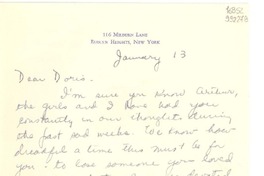 116 Modern Lane
Roslyn Heights, New York
January 13
Dear Doris.
I'm sure you know Arthur,
the girls and I have had you
constantly in our thoughts during
the past sad weeks. We know how
dreadful a time this must be for
you. to lose someone you loved
devoted